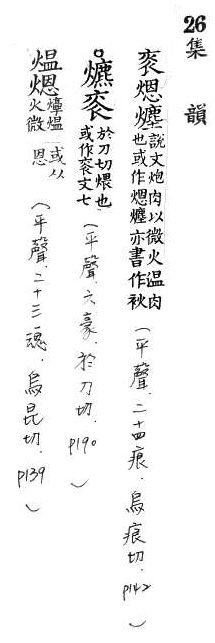 26 集韻
煾 說文炮肉以微火温肉
也或作煾 亦書作
（平聲.二十四痕.烏痕切.p142）
。爊 於刀切煨也
或作 文七
（平聲.六豪.於刀切.p190）
熅煾 熅
火微 或从
恩
（平聲.二十三魂.烏昆切.p139）